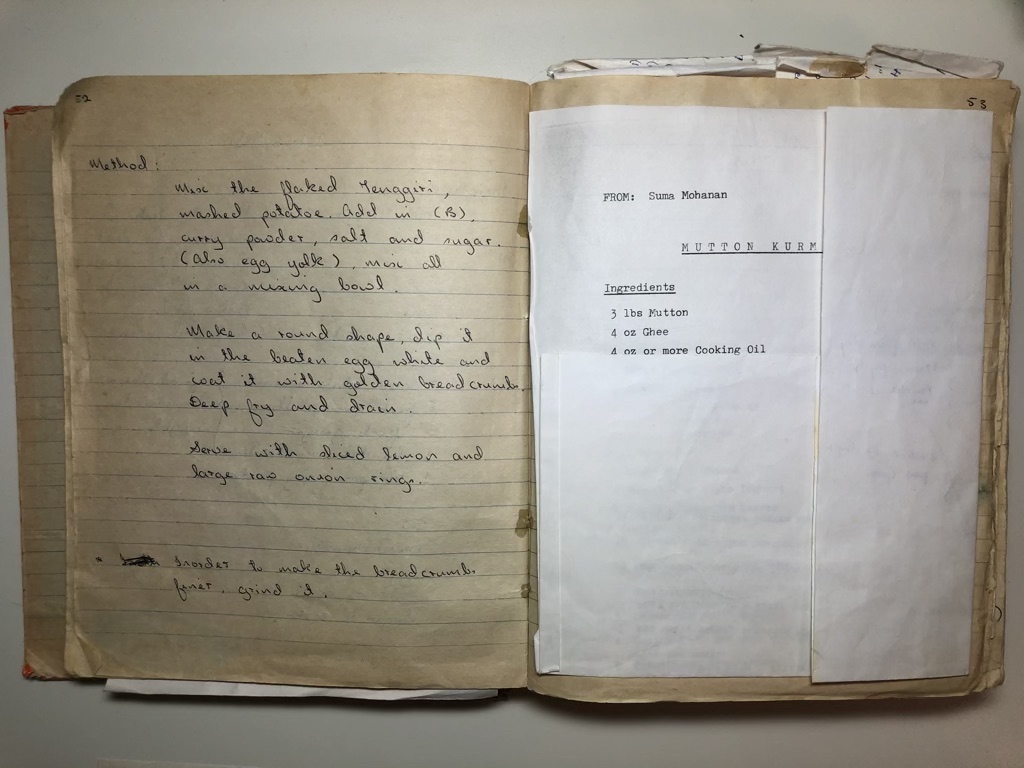 52
Method:
Mix the flaked Tenggiri,
mashed potatoe. Add in (B),
curry powder, salt and sugar.
(also egg yolk), mix all
in a mixing bowl.
Make a round shape, dip it
in the beaten egg white and
coat it with golden breadcrumbs.
Deep fry and drain.
Serve with sliced lemon and
large raw onion rings.
Inorder to make the breadcrumbs
finer, grind it.
53
FROM: Suma Mohanan
MUTTON KURM
Ingredients
3 lbs Mutton
4 oz Ghee
4 oz or more Cooking Oil